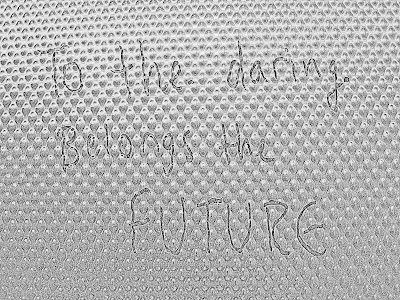 To the daring.
Belongs the
FUTURE